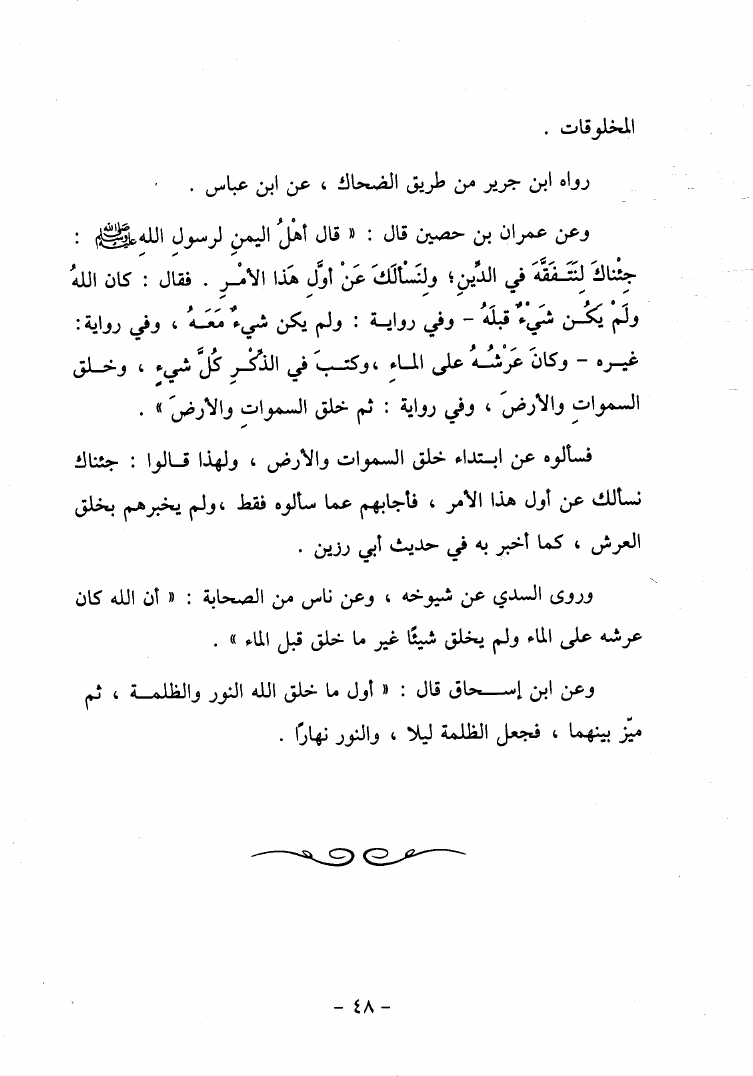 المخلوقات .
رواه ابن جرير من طريق الضحاك ، عن ابن عباس .
وعن عمران بن حصين قال : « قال أهْلُ اليمنِ لرسولِ اللهِ ﷺ :
جِئْناكَ لنَتَـفَقَّهَ في الدِّينِ؛ ولنَسْألَكَ عَنْ أوَّلِ هَذا الأمْـرِ . فقال : كان اللهُ
ولَمْ يَكُـن شَيْءٌ قبلَهُ – وفي روايـة : ولم يكن شيءٌ مَعَـهُ ، وفي رواية:
غيـره – وكانَ عَرْشُـهُ على المـاءِ ،وكتـبَ في الذِّكْـرِ كُلَّ شيءٍ ، وخـلق
السمواتِ والأرضَ ، وفي رواية : ثم خلق السمواتِ والأرضَ » .
فسألوه عن ابـتداء خلق السموات والأرض ، ولهذا قـالوا : جئناك
نسألك عن أول هذا الأمر ، فأجابهم عما سألوه فقط ،ولم يخبرهم بخلق
العرش ، كما أخبر به في حديث أبي رزين .
وروى السدي عن شيوخه ، وعن ناس من الصحابة : « أن الله كان
عرشه على الماء ولم يخلق شيئًا غير ما خلق قبل الماء » .
وعن ابن إسـحاق قال : « أول ما خلق الله النور والظلمـة ، ثم
ميّز بينهما ، فجعل الظلمة ليلا ، والنور نهارًا .
– ٤٨ –